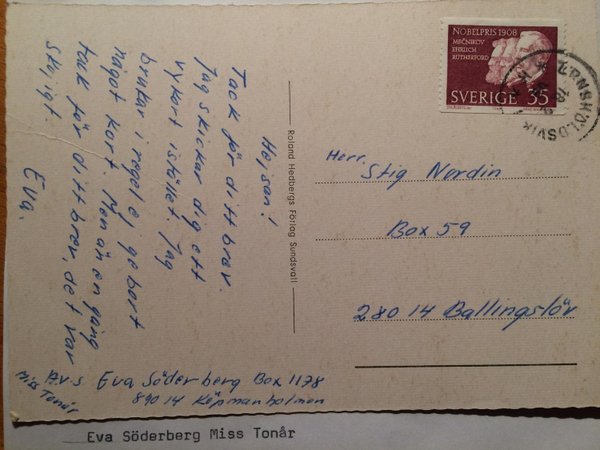 Hejsan!
Tack för ditt brev.
Jag skickar dig ett
vykort istället. Jag
brukar i regel ej ge bort
något kort. Men än en gång
tack för ditt brev, det var
skojigt.
Eva.
Roland Hedbergs Förlag Sundsvall
NOBELPRIS 1908
MEČNIKOV
EHRLICH
RUTHERFORD
SVERIGE 35
ÖRNSKÖLDSVIK
Herr.
Stig Nordin
Box 59
280 14 Ballingslöv
Avs Eva Söderberg Box 1178
Miss Tonår
890 14 Köpmanholmen
Eva Söderberg Miss Tonår